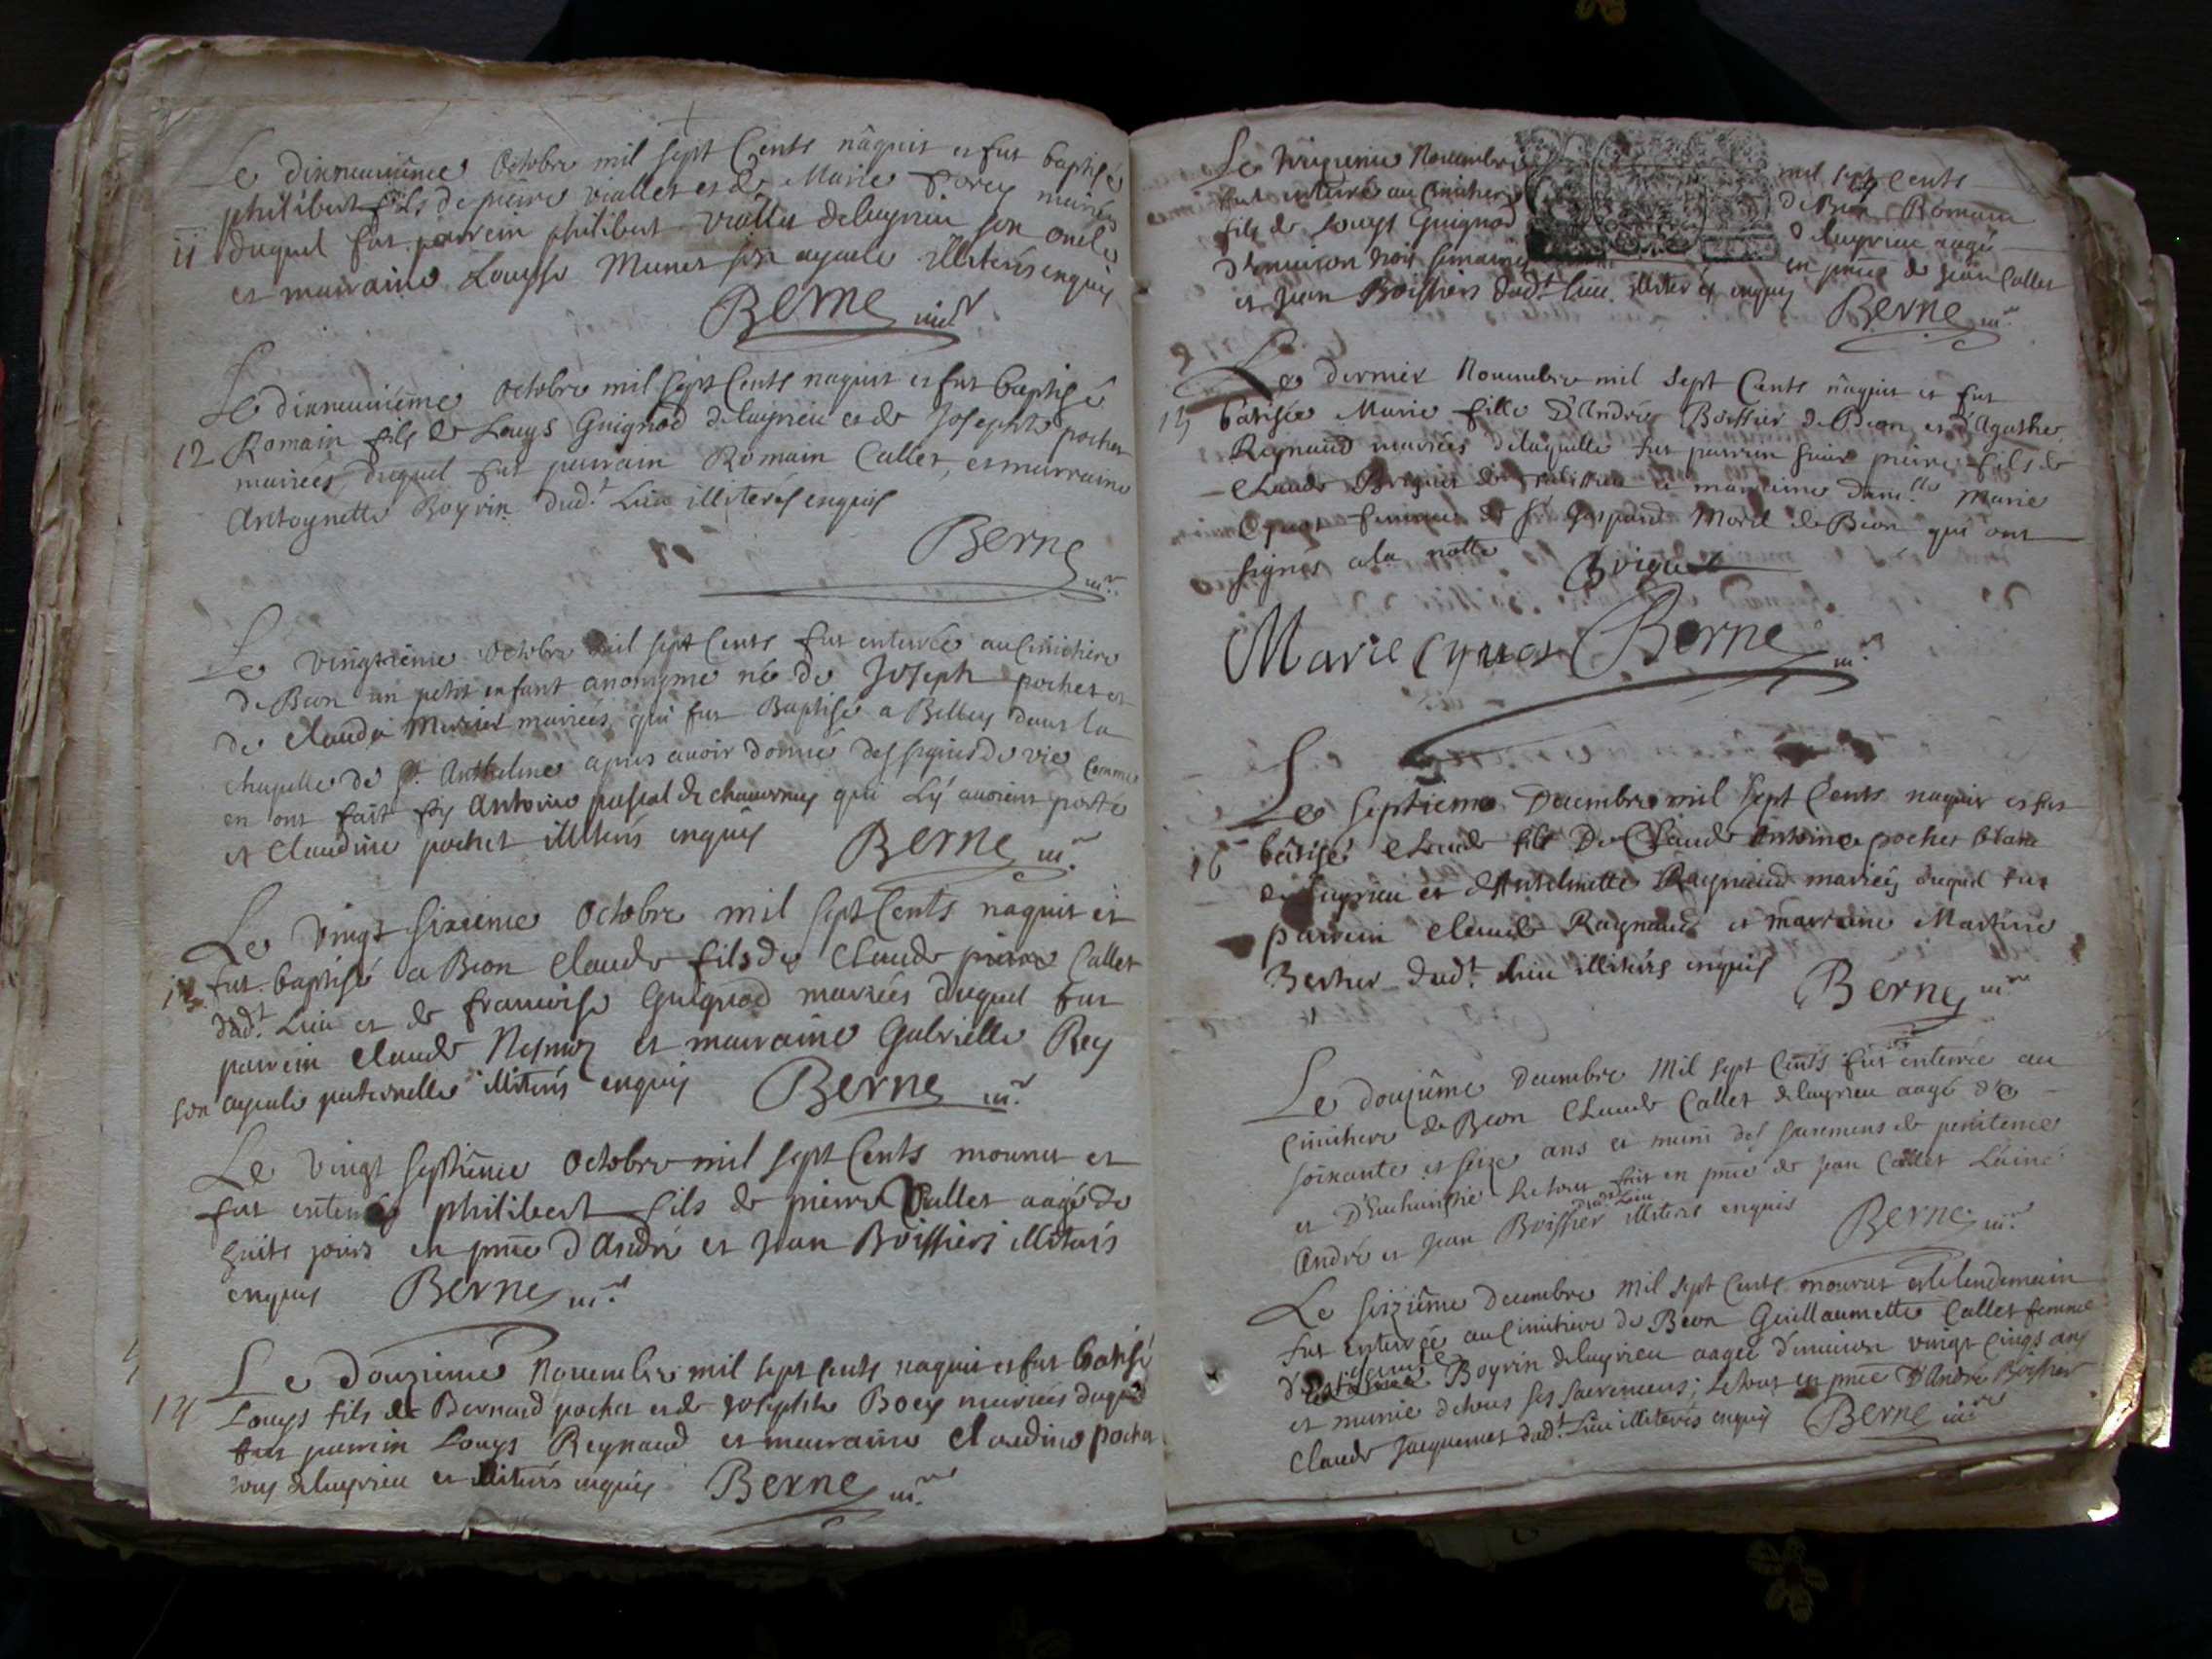 Le dixneuuiême Octobre mil sept Cents nâquit et fut baptisé
philibert fils de pierre viallet et de Marie mariés
11 duquel fut parrein philibert viallet deluyrieu son oncle
et marraine Louyse Munet son ayeule illiterés enquis
Berne
Le dixneuuiéme Octobre mil sept Cents naquit et fut baptisé
12 Romain fils de Louys Guignod deluyrieu et de Josephte pochet
mariées, duquel fut parrain Romain Callet, et marraine
Antoynette Boyrin dud.t Lieu illiterés enquis
Berne
Le vingtieme Octobre mil sept Cents fut enterrée au Cimitiere
de Beon un petit enfant anonyme né de Joseph pochet et
de Clauda Mercier mariées, qui fut Baptisé a Belley dans la
chapelle de S.t Anthelme apres auoir donné des signes de vie comme
en ont fait foy Antoine pascal de qui Ly auoient porté
et Claudine pochet illiterés enquis Berne
Le vingt sixieme Octobre mil sept Cents naquit et
13 fut baptisé a Beon Claude fils de Claude pierre Callet
dud.t Lieu et de francoise Guignod mariées duquel fut
parrein Claude et marraine Gabrielle Rey
son ayeule paternelle illiterés enquis Berne
Le vingt septiême Octobre mil sept Cents mourut et
fut enterré philibert fils de pierre Viallet aagé de
huits jours en pnce d'André et Jean Boissiers illiterés
enquis Berne
Le Douzieme Nouembre mil sept cents naquit et fut batisé
14 Louys fils de Bernard pochet et de Josephte Boey mariées duquel
fut parrein Louys Reynaud et marraine Claudine pochet
tous deluyrieu et illiterés enquis Berne
Le Nouembre mil sept Cents
fut enterré au Cimitiere de Beon Romain
fils de Louys Guignod deluyrieu aagé
d'enuiron trois semaines en pnce de Jean Callet
et Jean Boissiers dud.t Lieu illiterés enquis Berne
Le dernier Nouembre mil sept Cents nâquit et fut
15 bâtisée Marie fille D'André Boissier de Beon et d'Agathe
Reynaud mariées delaquelle fut parrein pierre fils de
Claude et marraine dam.lle Marie
Cyuot femme de S.r Gaspard Morel de Beon qui ont
signés ala notte
Marie Cyuot Berne
Le Septieme Decembre mil sept Cents naquit et fut
16 bâtisé Claude fils De Claude Antoine pochet blanc
de luyrieu et d'Anthelmette Raynaud mariés duquel fut
parrein Claude Raynaud et marraine Martine
Berthet dud.t Lieu illiterés enquis Berne
Le douziême Decembre Mil sept Cents fut enterré au
Cimitiere de Beon Claude Callet deluyrieu aagé de
soixante et seize ans et muni des sacremens de penitence
et D'Eucharistie le tout fait en pnce de Jean Callet Laîné
dud.t Lieu
André et Jean Boissier illiteré enquis Berne
Le Sixziême Decembre Mil sept Cents mourut et le lendemain
fut enterrée au Cimitiere de Beon Guillaumette Callet femme
Boyrin deluyrieu aagée d'enuiron vingt Cinqs ans
et munie detous ses sacremens; le tout en pnce D'André Boissier
Claude Jacquemet dud.t Lieu illiterés enquis Berne